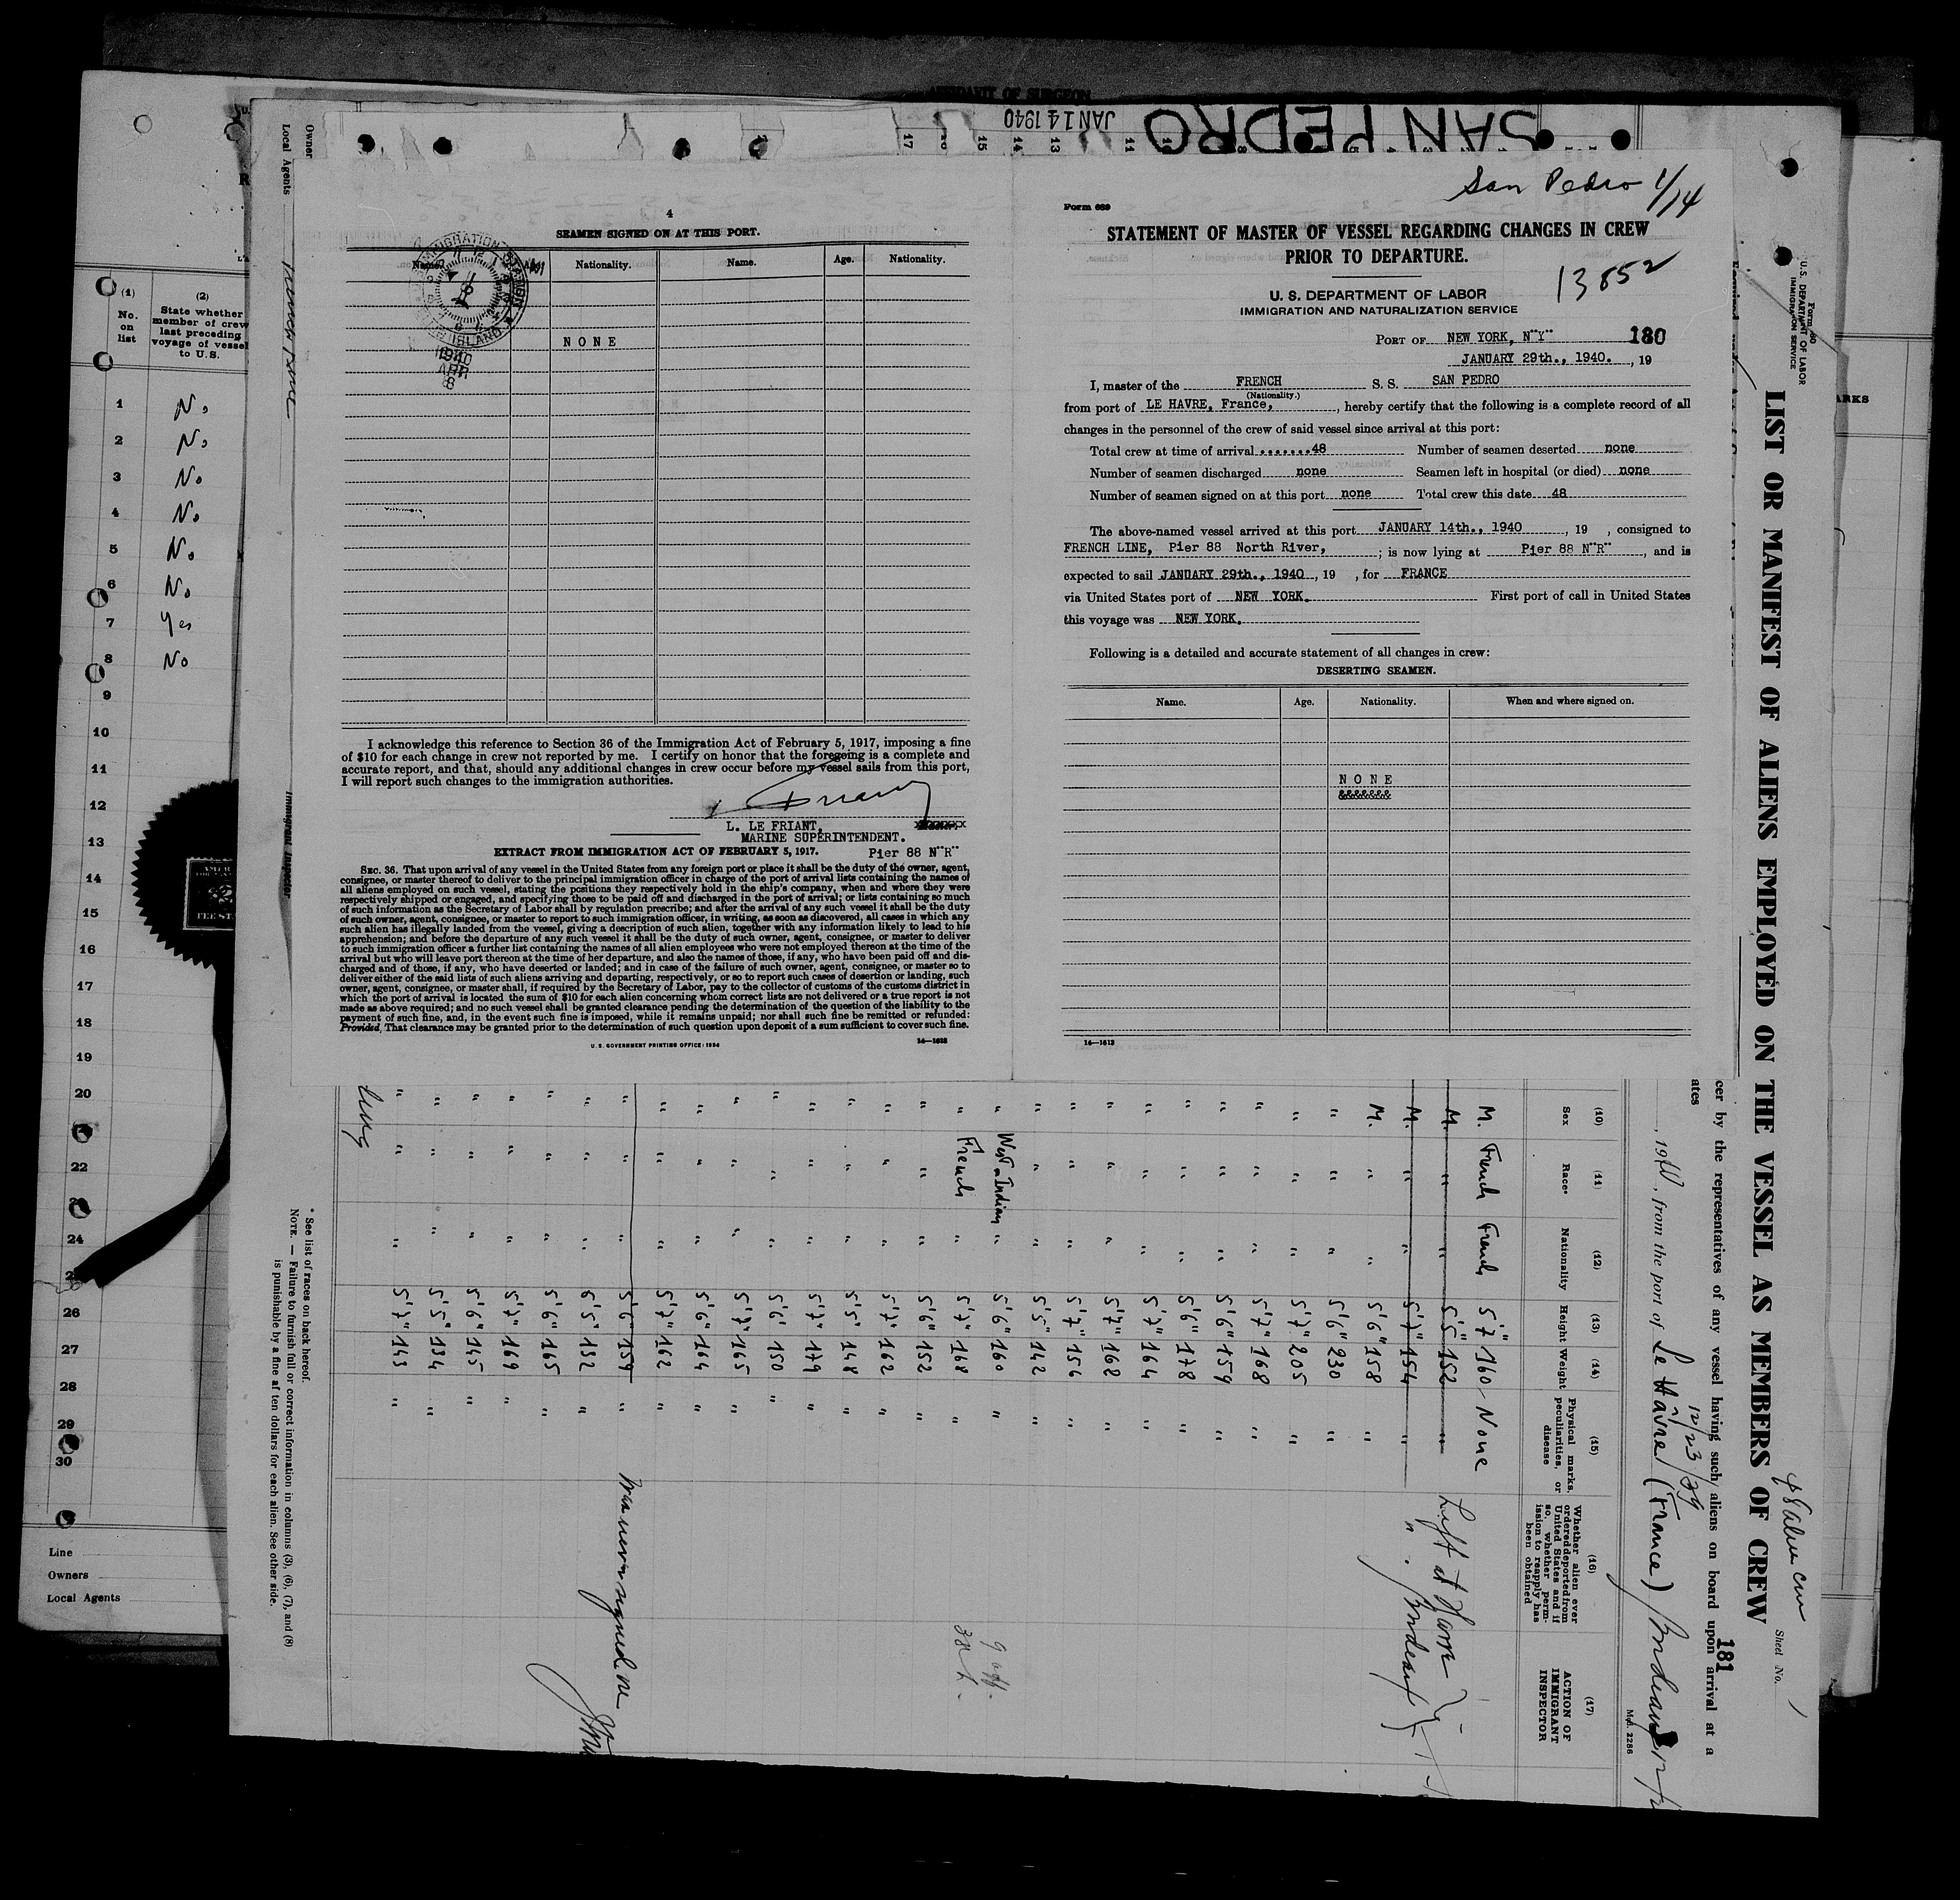 AFFIDAVIT OF SURGEON
SAN PEDRO
JAN 14 1940
San Pedro 1/14
4
SEAMEN SIGNED ON AT THIS PORT.
Name. Age. Nationality. Name. Age. Nationality.
NONE
1940
APR
8
I acknowledge this reference to Section 36 of the Immigration Act of February 5, 1917, imposing a fine
of $10 for each change in crew not reported by me. I certify on honor that the foregoing is a complete and
accurate report, and that, should any additional changes in crew occur before my vessel sails from this port,
I will report such changes to the immigration authorities.
L. LE FRIANT,
MARINE SUPERINTENDENT.
EXTRACT FROM IMMIGRATION ACT OF FEBRUARY 5, 1917. Pier 88 N"R"
SEC. 36. That upon arrival of any vessel in the United States from any foreign port or place it shall be the duty of the owner, agent,
consignee, or master thereof to deliver to the principal immigration officer in charge of the port of arrival lists containing the names of
all aliens employed on such vessel, stating the positions they respectively hold in the ship's company, when and where they were
respectively shipped or engaged, and specifying those to be paid off and discharged in the port of arrival; or lists containing so much
of such information as the Secretary of Labor shall by regulation prescribe; and after the arrival of any such vessel it shall be the duty
of such owner, agent, consignee, or master to report to such immigration officer, in writing, as soon as discovered, all cases in which any
such alien has illegally landed from the vessel, giving a description of such alien, together with any information likely to lead to his
apprehension; and before the departure of any such vessel it shall be the duty of such owner, agent, consignee, or master to deliver
to such immigration officer a further list containing the names of all alien employees who were not employed thereon at the time of the
arrival but who will leave port thereon at the time of her departure, and also the names of those, if any, who have been paid off and dis-
charged and of those, if any, who have deserted or landed; and in case of the failure of such owner, agent, consignee, or master so to
deliver either of the said lists of such aliens arriving and departing, respectively, or so to report such cases of desertion or landing, such
owner, agent, consignee, or master shall, if required by the Secretary of Labor, pay to the collector of customs of the customs district in
which the port of arrival is located the sum of $10 for each alien concerning whom correct lists are not delivered or a true report is not
made as above required; and no such vessel shall be granted clearance pending the determination of the question of the liability to the
payment of such fine, and, in the event such fine is imposed, while it remains unpaid; nor shall such fine be remitted or refunded:
Provided, That clearance may be granted prior to the determination of such question upon deposit of a sum sufficient to cover such fine.
U. S. GOVERNMENT PRINTING OFFICE: 1934 14—1613
Form 689
STATEMENT OF MASTER OF VESSEL REGARDING CHANGES IN CREW
PRIOR TO DEPARTURE.
13852
U. S. DEPARTMENT OF LABOR
IMMIGRATION AND NATURALIZATION SERVICE
PORT OF NEW YORK, N"Y" 180
JANUARY 29th., 1940. , 19
I, master of the FRENCH S. S. SAN PEDRO
(Nationality.)
from port of LE HAVRE, France, , hereby certify that the following is a complete record of all
changes in the personnel of the crew of said vessel since arrival at this port:
Total crew at time of arrival .......48 Number of seamen deserted none
Number of seamen discharged none Seamen left in hospital (or died) none
Number of seamen signed on at this port none Total crew this date 48
The above-named vessel arrived at this port JANUARY 14th., 1940 , 19 , consigned to
FRENCH LINE, Pier 88 North River, ; is now lying at Pier 88 N"R" , and is
expected to sail JANUARY 29th., 1940 , 19 , for FRANCE
via United States port of NEW YORK. First port of call in United States
this voyage was NEW YORK.
Following is a detailed and accurate statement of all changes in crew:
DESERTING SEAMEN.
Name. Age. Nationality. When and where signed on.
NONE
&&&&&&&
14—1613
(1) (2)
No. on list
State whether member of crew last preceding voyage of vessel to U.S.
1 No
2 No
3 No
4 No
5 No
6 No
7 Yes
8 No
9
10
11
12
13
14
15
16
17
18
19
20
22
24
26
27
28
29
30
Line
Owners
Local Agents
Owner
Local Agents
Immigrant Inspector
Form 680
U. S. DEPARTMENT OF LABOR
IMMIGRATION SERVICE
LIST OR MANIFEST OF ALIENS EMPLOYED ON THE VESSEL AS MEMBERS OF CREW
Sheet No. 1
181
cer by the representatives of any vessel having such aliens on board upon arrival at a
ates
12/23/39
, 1940, from the port of Le Hâvre (France)
Mod. 2286
(10) (11) (12) (13) (14) (15) (16) (17)
Sex Race* Nationality Height Weight
Physical marks, peculiarities, or disease
Whether alien ever ordered deported from United States and if so, whether permission to reapply has been obtained
ACTION OF IMMIGRANT INSPECTOR
M. French French 5'7" 160 None
M. " " 5'5" 152 " Left at Havre
M. " " 5'7" 154 " " Bordeaux
M. " " 5'6" 158 "
" " " 5'6" 230 "
" " " 5'7" 205 "
" " " 5'7" 168 "
" " " 5'6" 159 "
" " " 5'6" 178 "
" " " 5'7" 164 "
" " " 5'7" 168 "
" " " 5'7" 154 "
" " " 5'5" 142 "
" West-Indian " 5'6" 160 "
" French " 5'7" 168 "
" " " 5'6" 152 "
" " " 5'7" 162 "
" " " 5'5" 148 "
" " " 5'7" 179 "
" " " 5'6" 150 "
" " " 5'7" 165 "
" " " 5'6" 164 "
" " " 5'7" 162 "
" " " 5'6" 159 "
" " " 5'5" 152 "
" " " 5'6" 165 "
" " " 5'7" 169 "
" " " 5'6" 145 "
" " " 5'5" 134 "
" " " 5'7" 143 "
* See list of races on back hereof.
NOTE. — Failure to furnish full or correct information in columns (3), (6), (7), and (8)
is punishable by a fine af ten dollars for each alien. See other side.